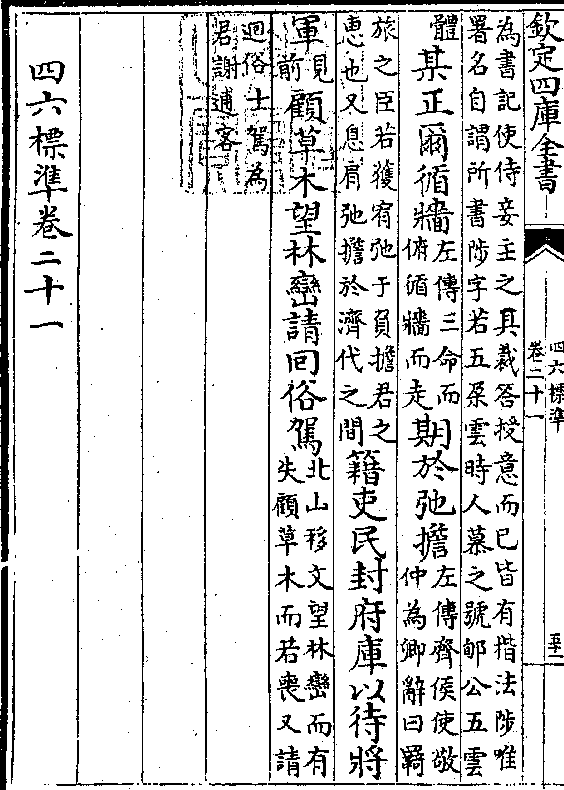 欽定四庫全書
四六標準
卷二十一
為書記使侍妾主之其裁答授意而已皆有楷法陟唯
署名自謂所書陟字若五朶雲時人慕之號郇公五雲
體
某正爾循牆
左傳三命而
俯循牆而走
期於弛擔
左傳齊侯使敬
仲為卿辭曰羇
旅之臣若獲宥弛于負擔君之
恵也又息肩弛擔於濟代之間
籍吏民封府庫以待將
軍
見
前
顧草木望林巒請回俗駕
北山移文望林巒而有
失顧草木而若喪又請
迴俗士駕為
君謝逋客
四六標準卷二十一